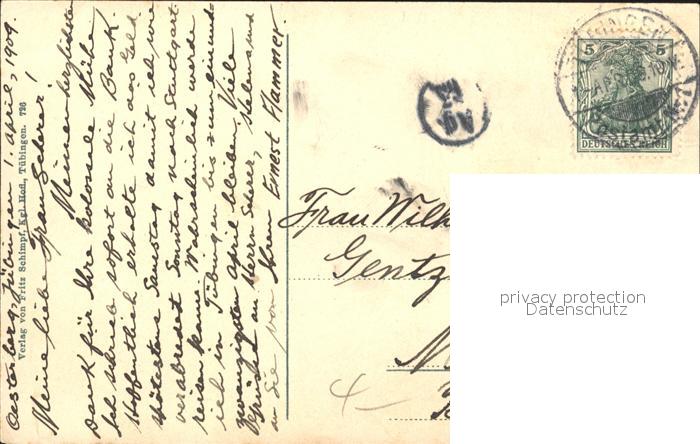 Oesterberg, Tübingen 1. April, 1909.
Meine liebe Frau Scherer!
Meinen herzlichsten
Dank für Ihre kolossale Mühe
Ich schrieb sofort an die Bank.
Hoffentlich erhalte ich das Geld
spätestens Samstag damit ich wie
verabredet Sonntag nach Stuttgart
reisen kann. Wahrscheinlich werde
ich in Tübingen bis zum einund
zwanzigsten April bleiben. Viele
Grüsse an Herrn Scherer, Helene und
an Sie von Ihrem Ernest Hammer.
Verlag von Fritz Schimpf, Kgl. Hofl., Tübingen. 726
5 5
DEUTSCHES REICH
Frau Wilh
Gentz
privacy protection
Datenschutz